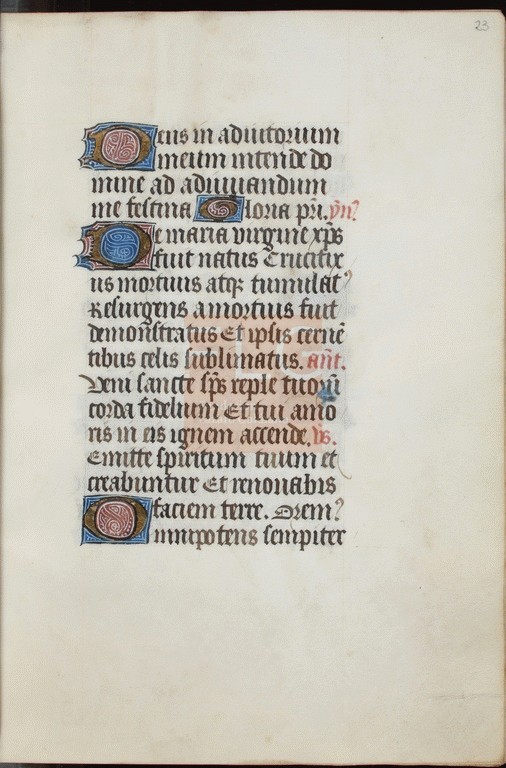 23
Deus in adiutorium
meum intende do
mine ad adiuuandum
me festina Gloria pri. ymº
De maria virgine xps
fuit natus Crucifix
us mortuus atqꝫ tumulatꝰ
Resurgens a mortuis fuit
demonstratus Et ipsis cernē
tibus celis sublimatus. ant.
Veni sancte sps reple tuorū
corda fidelium Et tui amo
ris in eis ignem accende. vs.
Emitte spiritum tuum et
creabuntur Et renouabis
faciem terre. Oremꝰ
Omnipotens sempiter